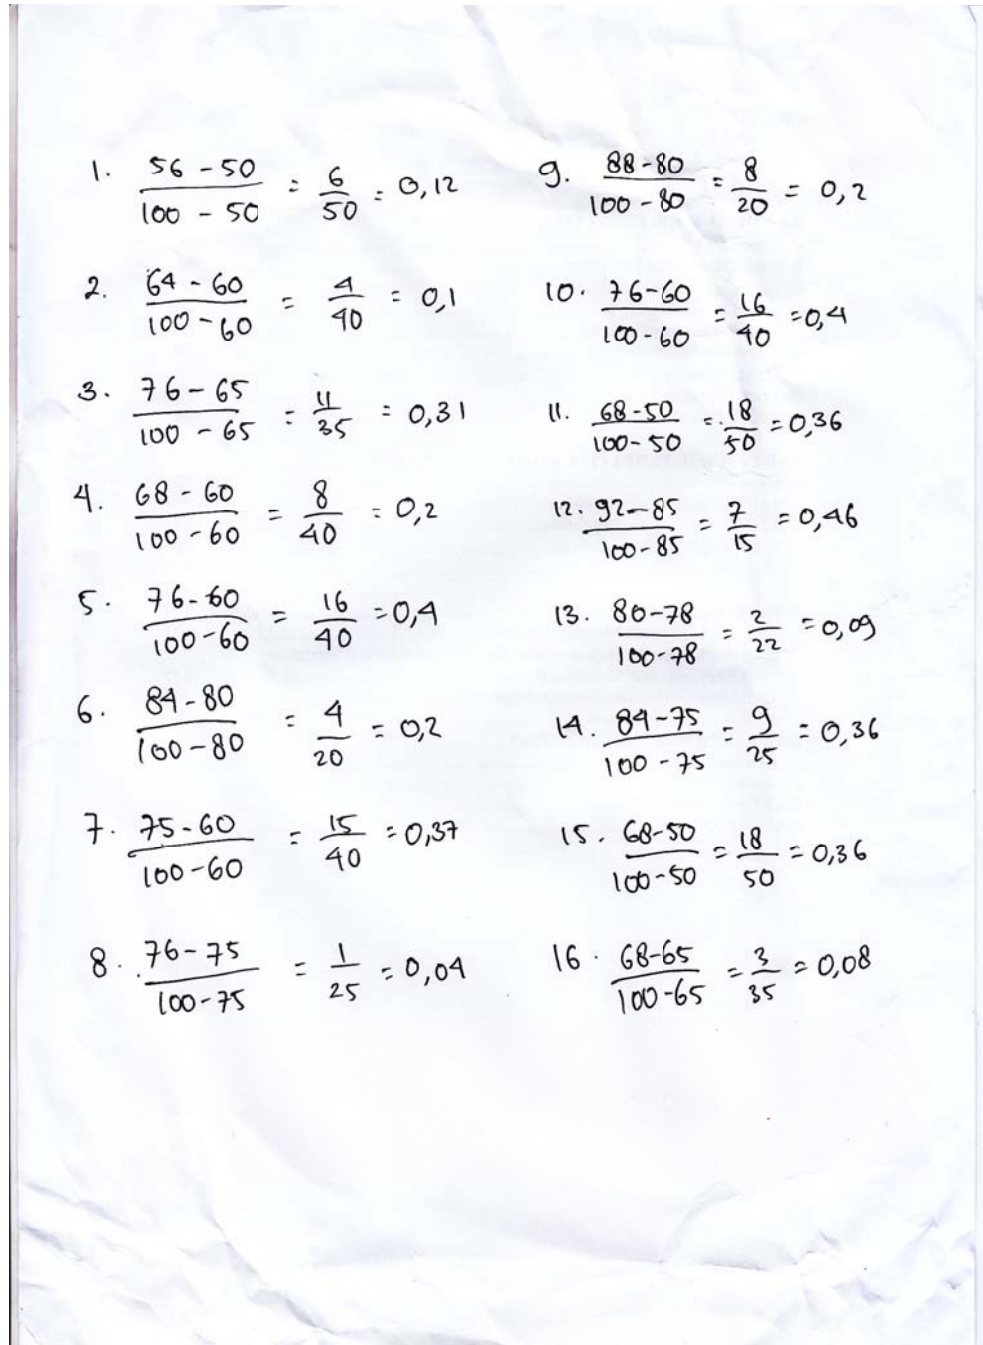 1. 56 - 50 / 100 - 50 = 6/50 = 0,12
2. 64 - 60 / 100 - 60 = 4/40 = 0,1
3. 76 - 65 / 100 - 65 = 11/35 = 0,31
4. 68 - 60 / 100 - 60 = 8/40 = 0,2
5. 76 - 60 / 100 - 60 = 16/40 = 0,4
6. 84 - 80 / 100 - 80 = 4/20 = 0,2
7. 75 - 60 / 100 - 60 = 15/40 = 0,37
8. 76 - 75 / 100 - 75 = 1/25 = 0,04
9. 88 - 80 / 100 - 80 = 8/20 = 0,2
10. 76 - 60 / 100 - 60 = 16/40 = 0,4
11. 68 - 50 / 100 - 50 = 18/50 = 0,36
12. 92 - 85 / 100 - 85 = 7/15 = 0,46
13. 80 - 78 / 100 - 78 = 2/22 = 0,09
14. 84 - 75 / 100 - 75 = 9/25 = 0,36
15. 68 - 50 / 100 - 50 = 18/50 = 0,36
16. 68 - 65 / 100 - 65 = 3/35 = 0,08